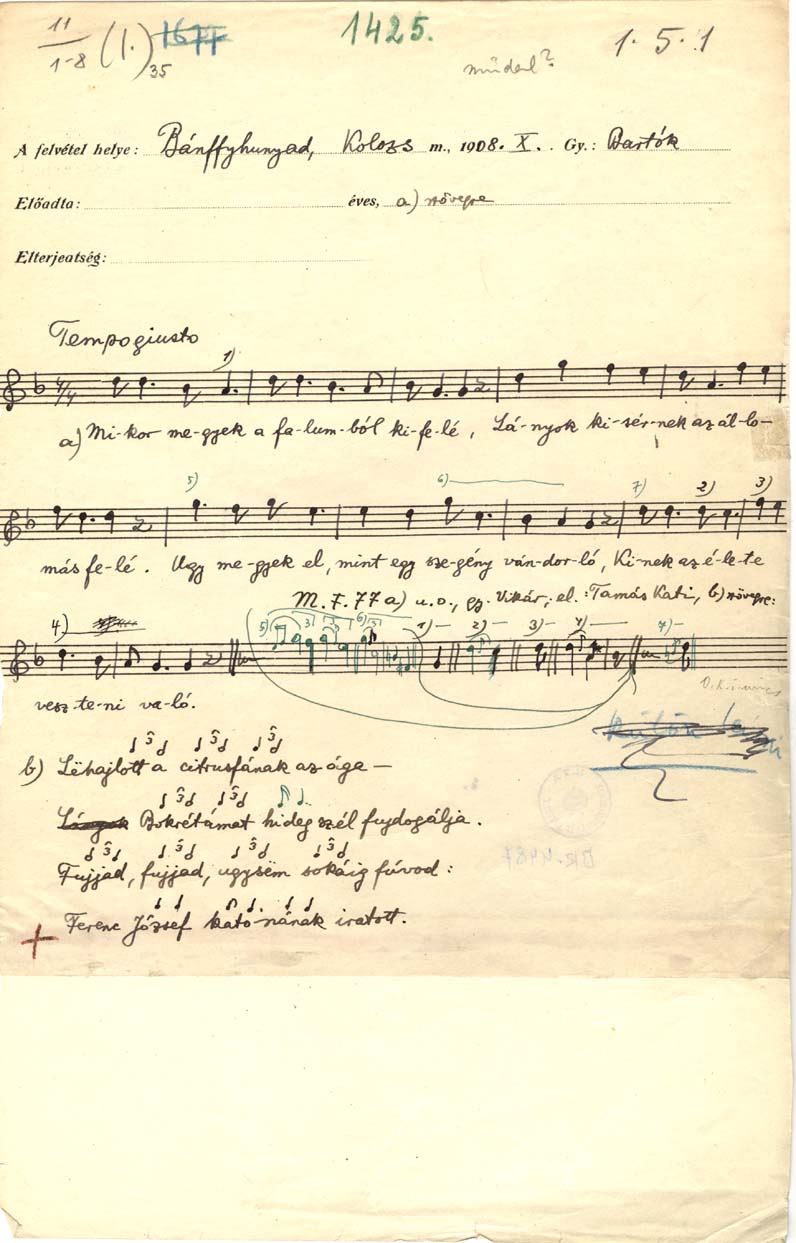 11/1-8 (I.)35 1677 1425. 1. 5. 1
műdal?
A felvétel helye: Bánffyhunyad, Kolozs m., 1908. X. Gy.: Bartók
Előadta: éves, a) szövegre
Elterjedtség:
Tempo giusto
1)
4/4
a) Mi-kor me-gyek a fa-lum-ból ki-fe-lé, Lá-nyok ki-sér-nek az ál-lo-
5) 6) 7) 2) 3)
más fe-lé. Ugy me-gyek el, mint egy sze-gény ván-dor-ló, Ki-nek az é-le-te
M. F. 77 a) u.o., gy. Vikár; el.: Tamás Kati, b) szövegre:
4) 5) 3 6) 1) 2) 3) 4) 7)
vesz-te-ni va-ló.
b) Lëhajlott a citrusfának az ága —
Bokrétámat hideg szél fujdogálja.
Fujjad, fujjad, ugysëm sokáig fúvod:
Ferenc József kató-nának iratott.